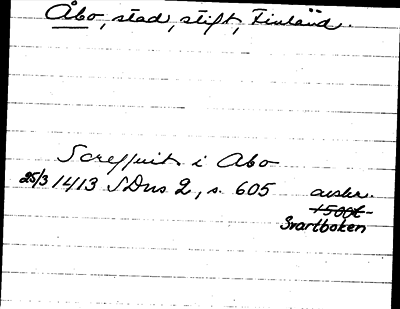 Åbo, stad, stift, Finland.
i Abo
25/3 1413 SDns 2, s. 605 avskr.
1500t
Svartboken